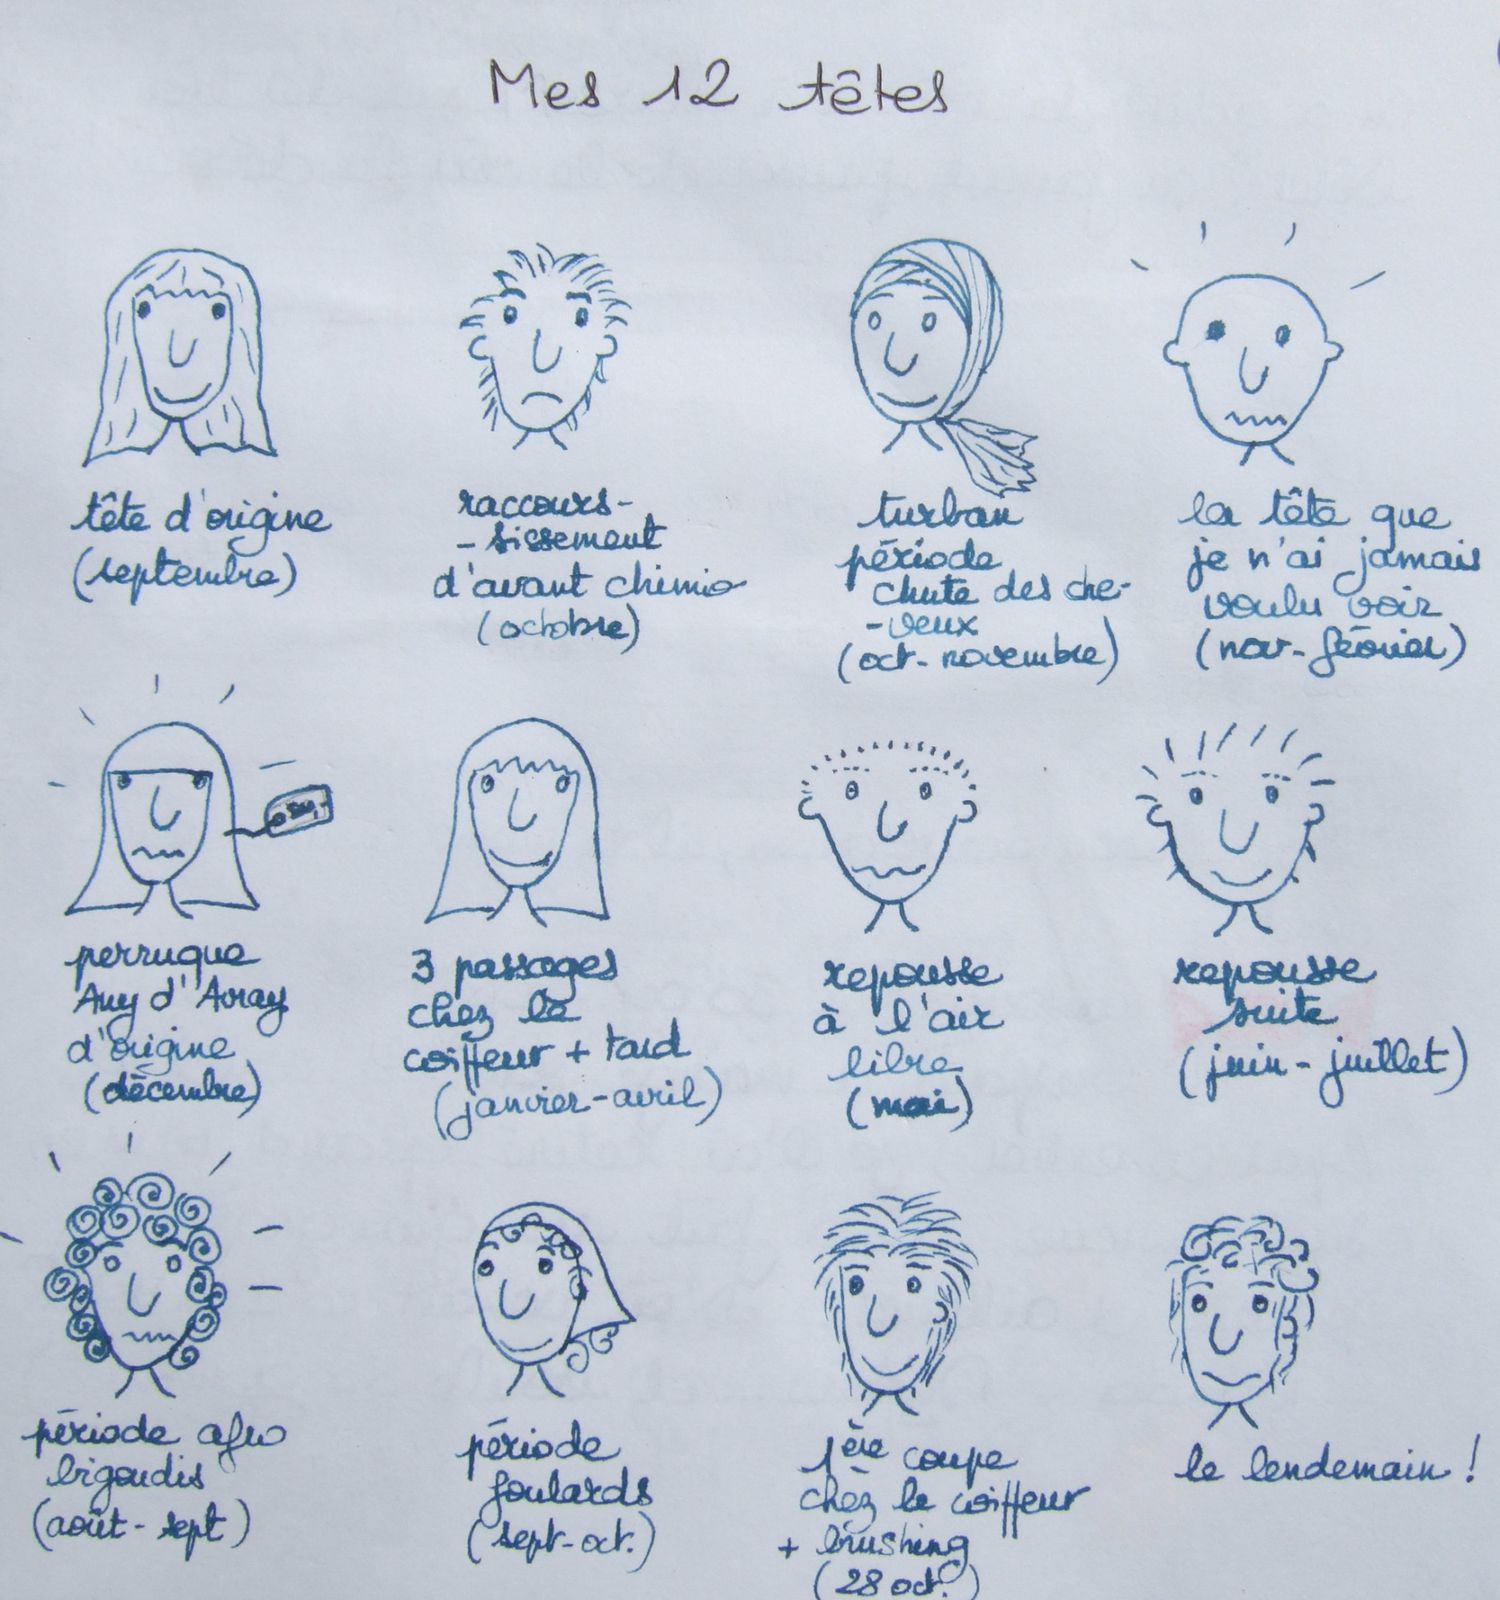 Mes 12 têtes
tête d'origine
(septembre)
raccours-
-sissement
d'avant chimio
(octobre)
turban
période
chute des che-
-veux
(oct-novembre)
la tête que
je n'ai jamais
voulu voir
(nov-février)
perruque
Any d'Avray
d'origine
(décembre)
3 passages
chez le
coiffeur + tard
(janvier-avril)
repousse
à l'air
libre
(mai)
repousse
suite
(juin-juillet)
période afro
bigoudis
(août-sept)
période
foulards
(sept-oct.)
1ère coupe
chez le coiffeur
+ brushing
(28 oct.)
le lendemain !